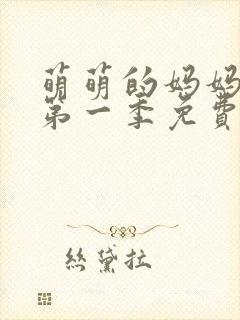 萌萌的妈妈
第一季免費
絲黛拉